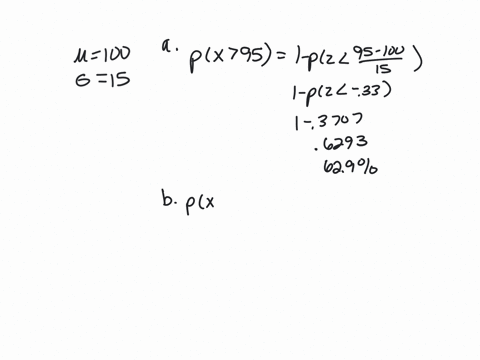 μ=100
σ=15
a. p(x>95) = 1-p(z< (95-100)/15 )
1-p(z<-.33)
1-.3707
.6293
62.9%
b. p(x